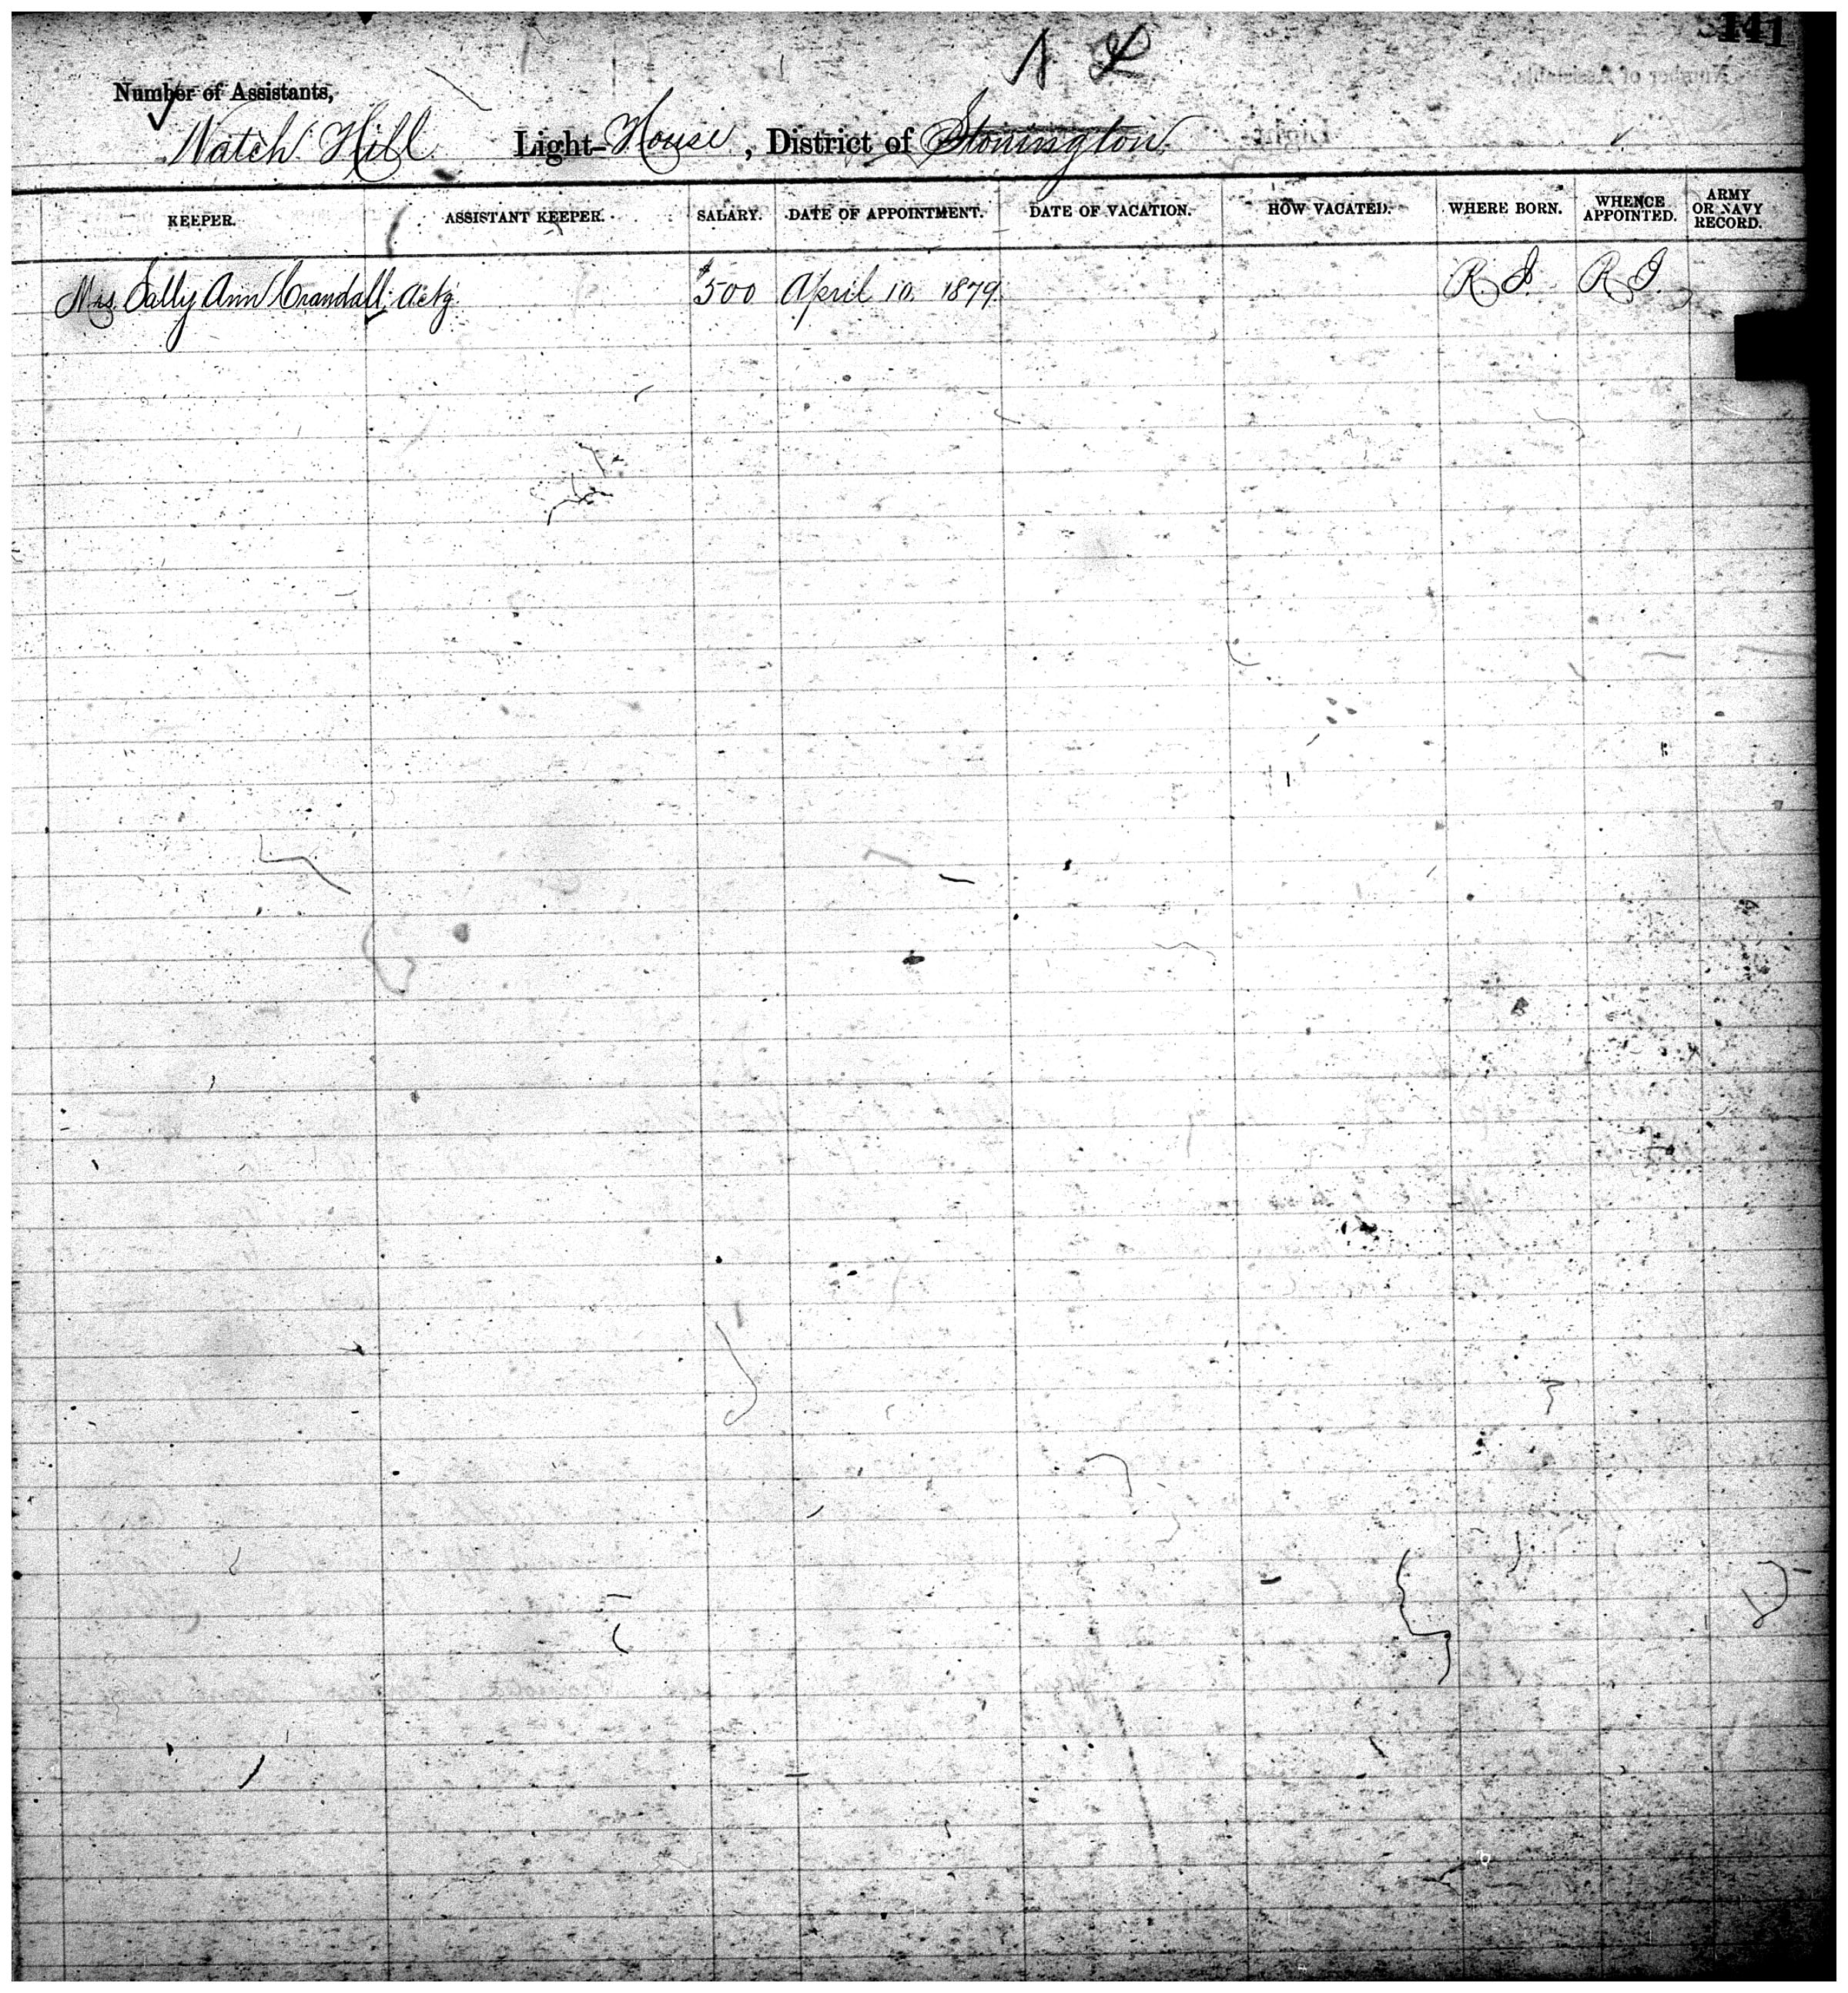 141
N L
Number of Assistants,
Watch Hill Light-House, District of Stonington.
KEEPER. ASSISTANT KEEPER. SALARY. DATE OF APPOINTMENT. DATE OF VACATION. HOW VACATED. WHERE BORN. WHENCE APPOINTED. ARMY OR NAVY RECORD.
Mrs. Sally Ann Crandall, actg. $500 April 10, 1879. R. I. R I.